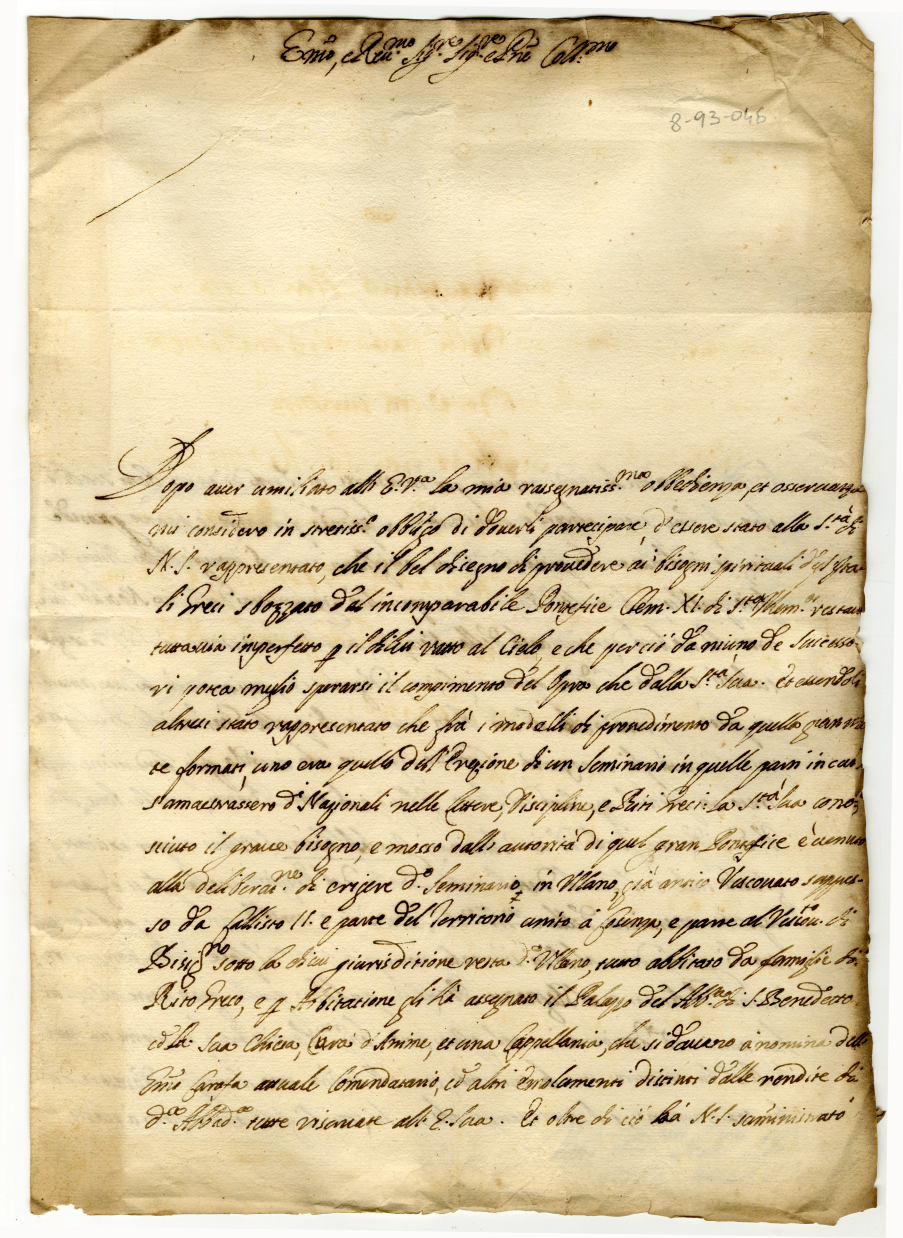 Emo, e Reu.mo Sig.re Sig.re e Prne Coll.mo
8-93-046
Dopo auer umiliato all' E. V.ra la mia rassegnatiss.ma obbedienza, et osseruanza
mi considero in stretiss.o obbligo di douerli partecipare, d'essere stato alla S.tà di
N. S. rappresentato, che il bel disegno di prouedere ai bisogni spirituali degl' Ita-
li Greci sbozzato dal incomparabile Pontefice Clem. XI. di S.ta Mem.a restaua
tuttauia imperfetto p il di lui vuto al Cielo, e che perciò da niuno de Successo-
ri potea meglio sperarsi il compimento del Opra che dalla S.tà Sua. Et essendoli
altresi stato rappresentato che frà i modelli di prouedimento da quella gran
te formati, uno era quello dell' Erezione di un Seminario in quelle parti in cui
s'amaestrassero d. Nazionali nelle lettere, Discipline, e Riti Greci: la S.tà Sua cono-
sciuto il graue bisogno, e mosso dall' autorità di quel gran Pontefice è uenuto
alla deliberat.ne di erigere d.o Seminario in Vllano, già antico Vescouato soppres-
so da Callisto II. e parte del Territorio unito à Cosenza, e parte al Vescou. di
Bisig.no sotto la di cui giurisditione resta d.o Vllano, tutto abbitato da famiglie di
Rito Greco, e p Abbitatione gli hà assegnato il Palazo del Abb.a di S. Benedetto
cõ la sua Chiesa, Cura d'Anime, et una Cappellania, che si dauano à nomina dell'
Emo Carafa attuale Comendatario, cõ altri emolumenti distinti dalle rendite di
d.a Abbad.a tutte riseruate all' E. Sua. Et oltre di ciò hà N. S. somministrato